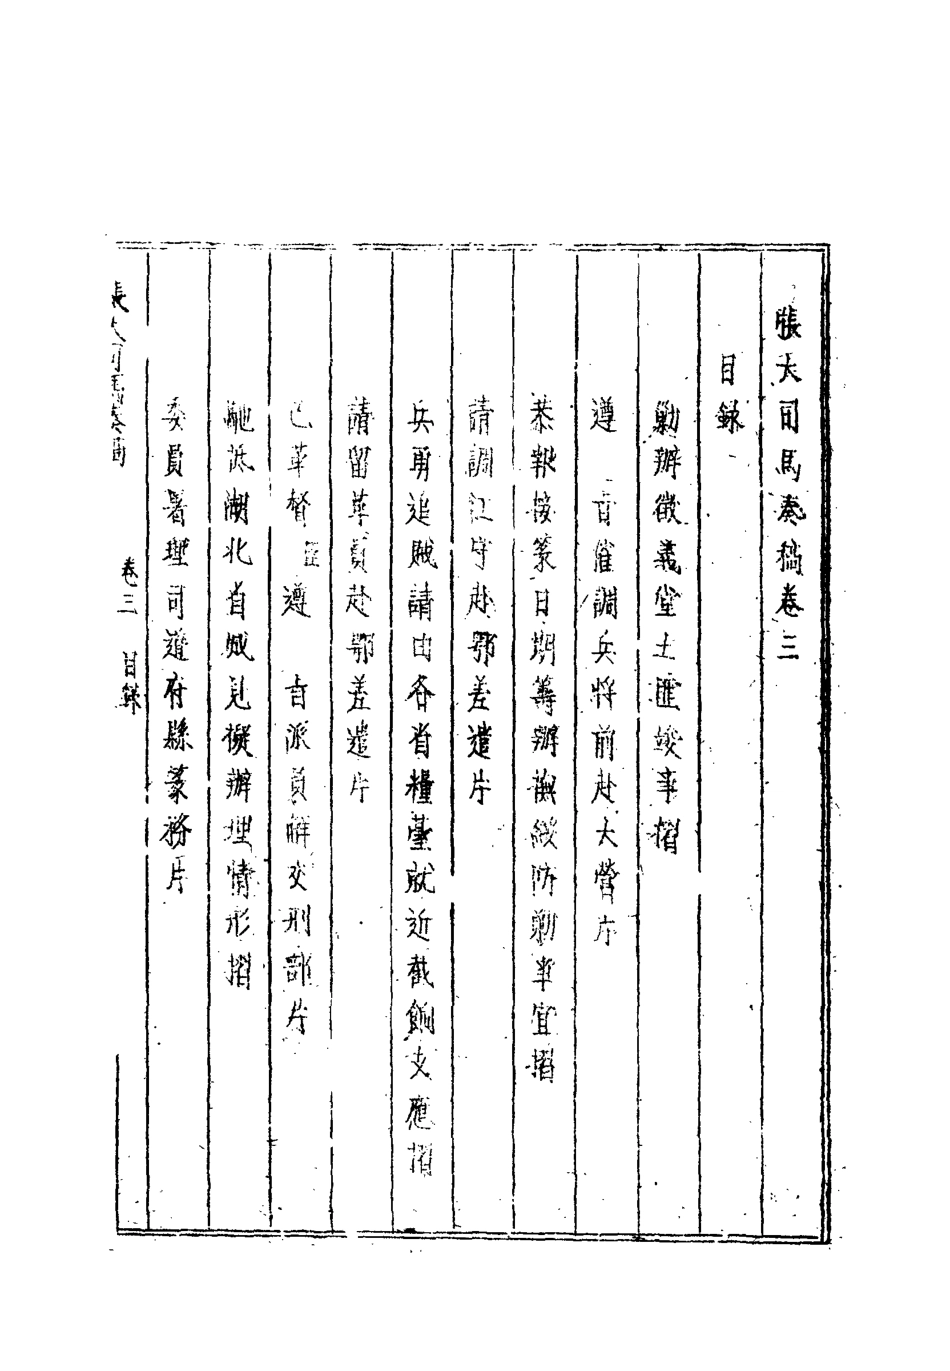 張大司馬奏稿卷三
目録
勦辦徵義堂土匪竣事摺
遵　旨催調兵將前赴大營片
恭報接篆日期籌辦撫綏防勦事宜摺
請調江守赴鄂差遣片
兵勇追賊請由各省糧臺就近截餉支應摺
請留革員赴鄂差遣片
已革督臣遵　旨派員解交刑部片
馳抵湖北省城見擬辦理情形摺
委員署理司道府縣篆務片
張大司馬奏稿　卷三　目録